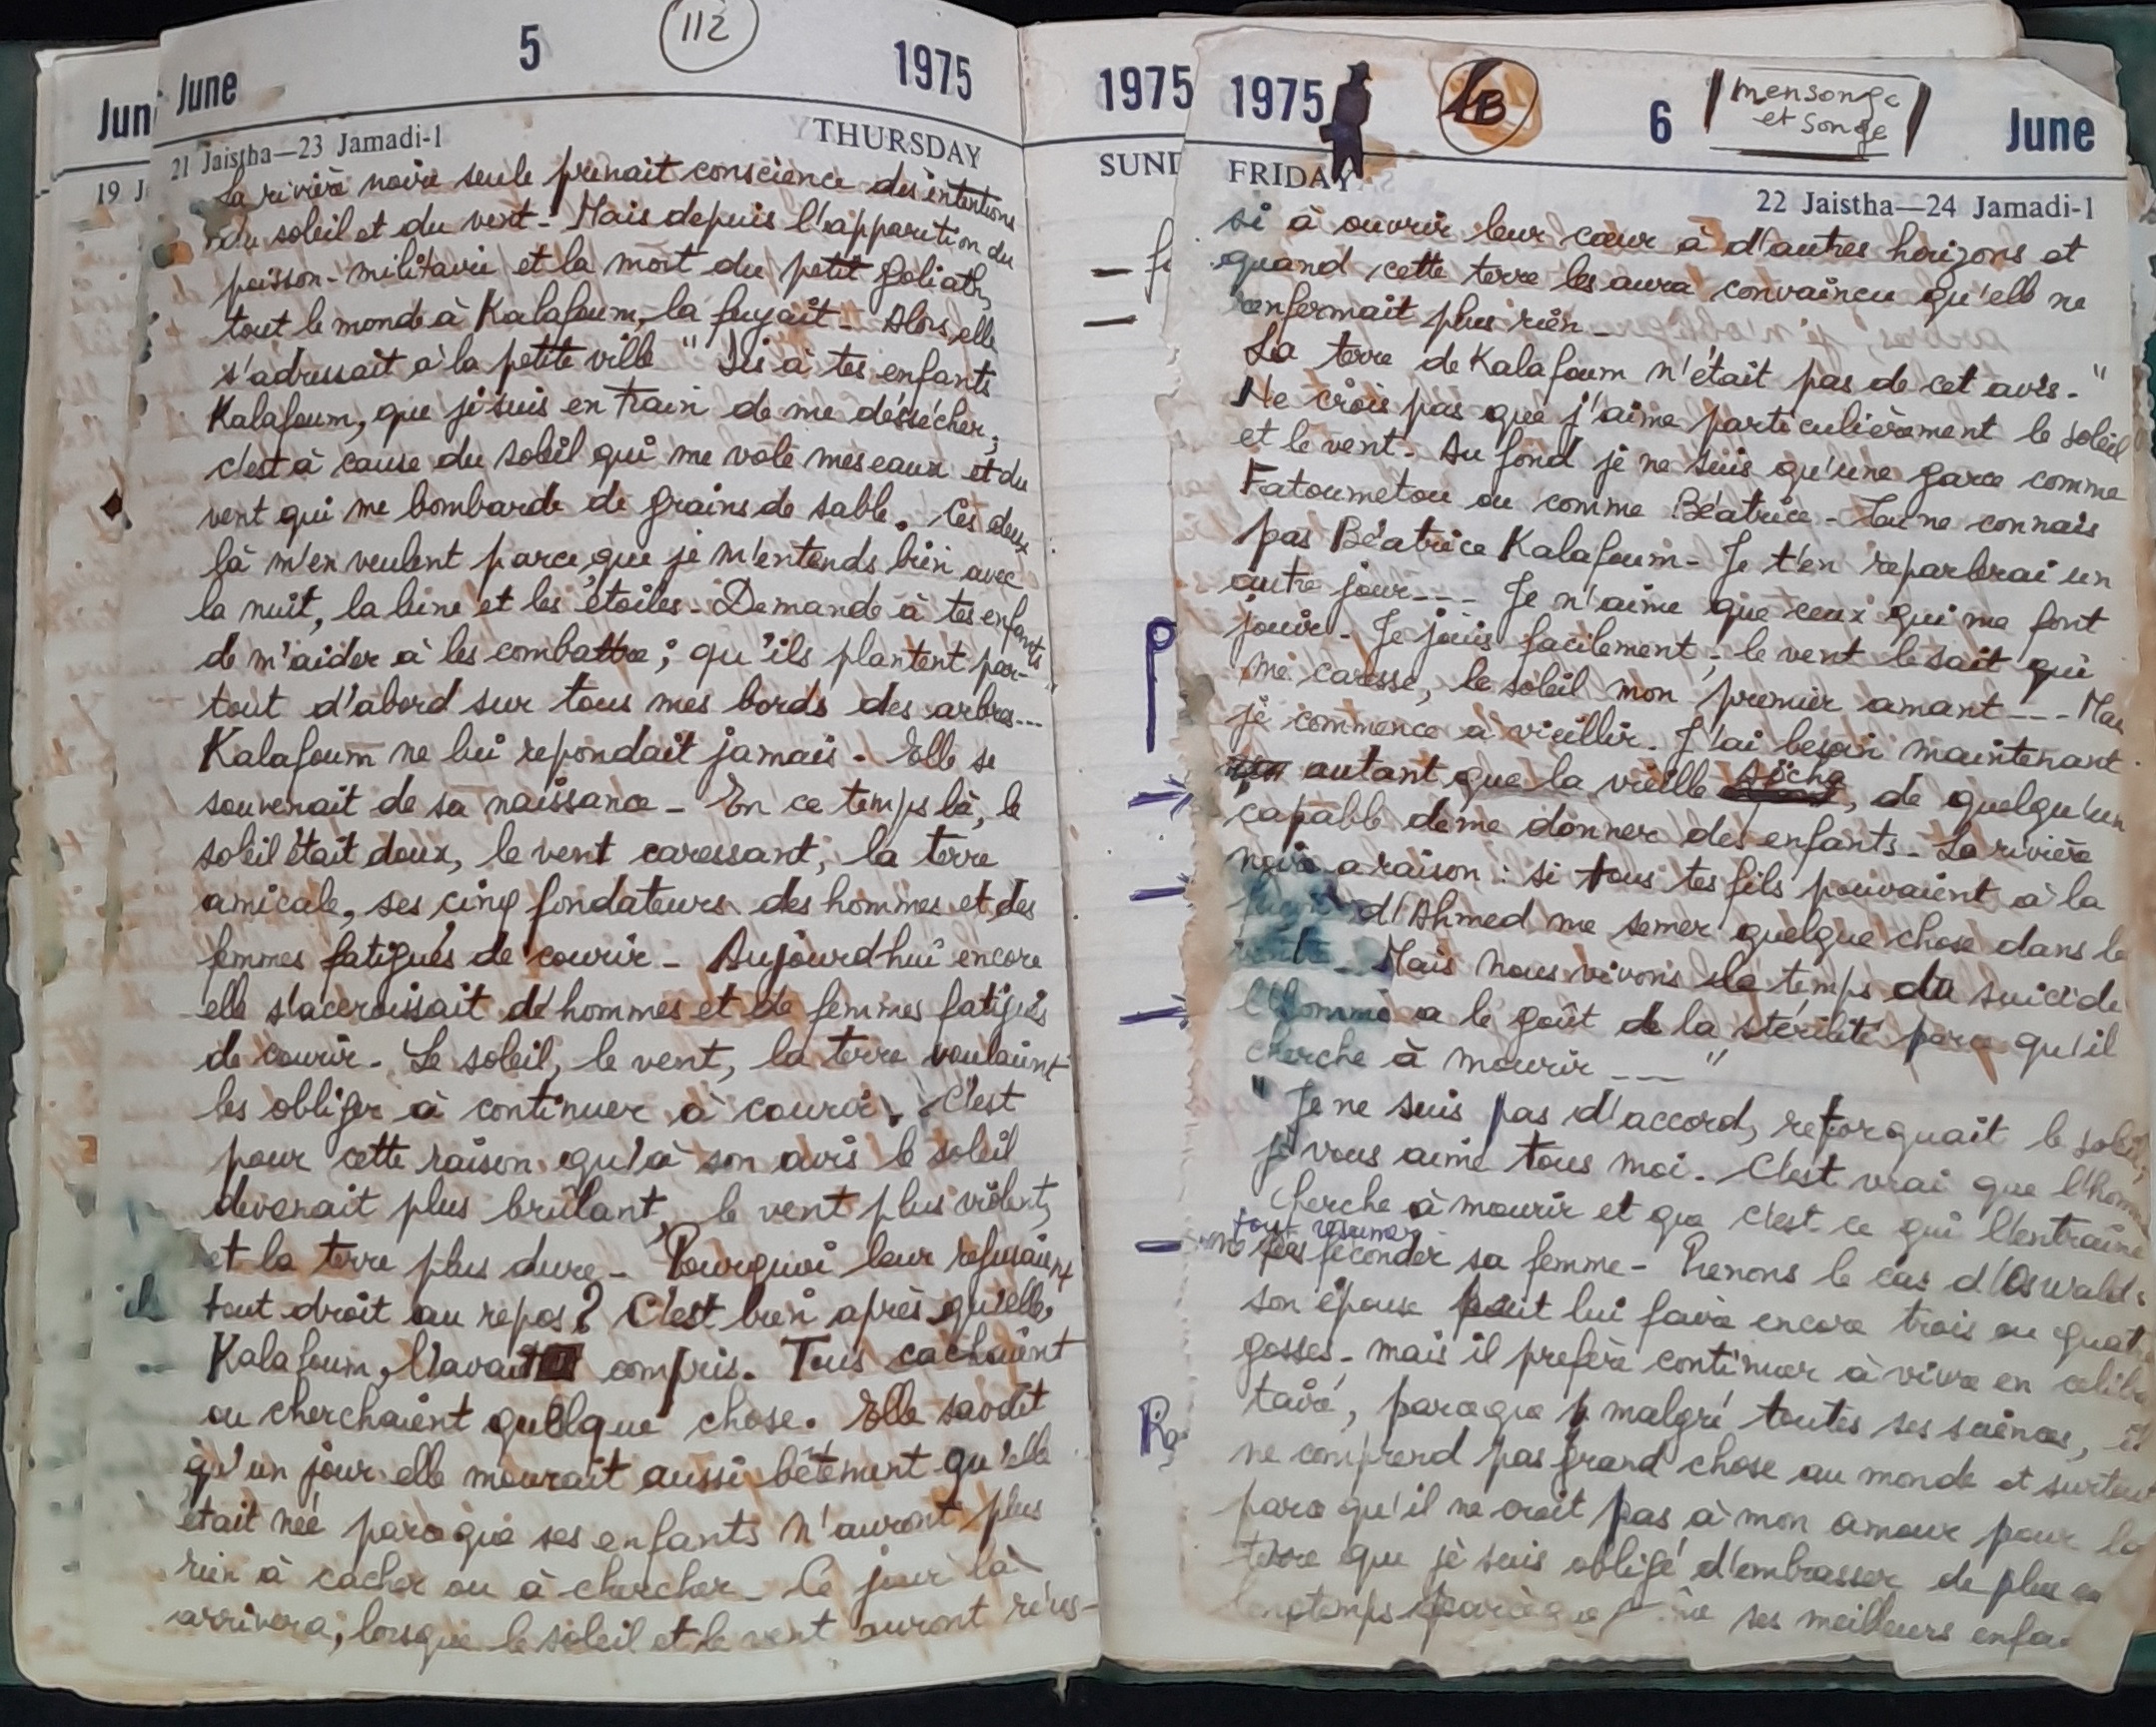 Jun
19 J
June
5
112
1975
21 Jaistha—23 Jamadi-1
THURSDAY
La rivière noire seule prenait conscience des intentions
du soleil et du vent - Mais depuis l'apparition du
poisson-militaire et la mort du petit Goliath,
tout le monde à Kalafoum, la fuyait - Alors elle
s'adressait à la petite ville " Dis à tes enfants
Kalafoum, que je suis en train de me déssécher,
c'est à cause du soleil qui me vole mes eaux et du
vent qui me bombarde de grains de sable. Ces deux
là m'en veulent parce que je m'entends bien avec
la nuit, la lune et les étoiles - Demande à tes enfants
de m'aider à les combattre ; qu'ils plantent par-
tout d'abord sur tous mes bords des arbres... "
Kalafoum ne lui repondait jamais. Elle se
souvenait de sa naissance - En ce temps là, le
soleil était doux, le vent caressant, la terre
amicale, ses cinq fondateurs des hommes et des
femmes fatigués de courir - Aujourd'hui encore
elle s'accroissait d'hommes et de femmes fatigués
de courir - Le soleil, le vent, la terre voulaient
les obliger à continuer à courir. C'est
pour cette raison qu'à son avis le soleil
devenait plus brûlant, le vent plus violent,
et la terre plus dure - Pourquoi leur refusaient
ils tout droit au repos ? C'est bien après qu'elle,
Kalafoum, l'avait compris. Tous cachaient
ou cherchaient quelque chose. Elle savait
qu'un jour elle mourait aussi bêtement qu'elle
était née parce que ses enfants n'auront plus
rien à cacher ou à chercher - Ce jour là
arrivera, lorsque le soleil et le vent auront réus-
1975
SUND
1975
LB
6
mensonge
et songe
June
FRIDAY
22 Jaistha—24 Jamadi-1
si à ouvrir leur cœur à d'autres horizons et
quand cette terre les aura convaincu qu'elle ne
renfermait plus rien -
La terre de Kalafoum n'était pas de cet avis - "
Ne crois pas que j'aime particulièrement le soleil
et le vent - Au fond je ne suis qu'une garce comme
Fatoumetou ou comme Béatrice - Tu ne connais
pas Béatrice Kalafoum - Je t'en reparlerai un
autre jour --- Je n'aime que ceux qui me font
jouir - Je jouis facilement, le vent le sait qui
me caresse, le soleil mon premier amant --- Mais
je commence à vieillir. J'ai besoin maintenant
autant que la vieille, de quelqu'un
capable de me donner des enfants - La rivière
noire a raison : si tous tes fils pouvaient à la
d'Ahmed me semer quelque chose dans le
ventre - Mais nous vivons le temps du suicide
l'homme a le goût de la stérilité parce qu'il
cherche à mourir --- "
" Je ne suis pas d'accord, retorquait le soleil,
je vous aime tous moi. C'est vrai que l'homme
cherche à mourir et que c'est ce qui l'entraine
ne pas féconder sa femme - Prenons le cas d'Oswald.
son épouse peut lui faire encore trois ou quatre
gosses - mais il prefère continuer à vivre en céliba
taire, parce que malgré toutes ses sciences, il
ne comprend pas grand chose au monde et surtout
parce qu'il ne croit pas à mon amour pour la
terre que je suis obligé d'embrasser de plus en
longtemps parceque ses meilleurs enfa